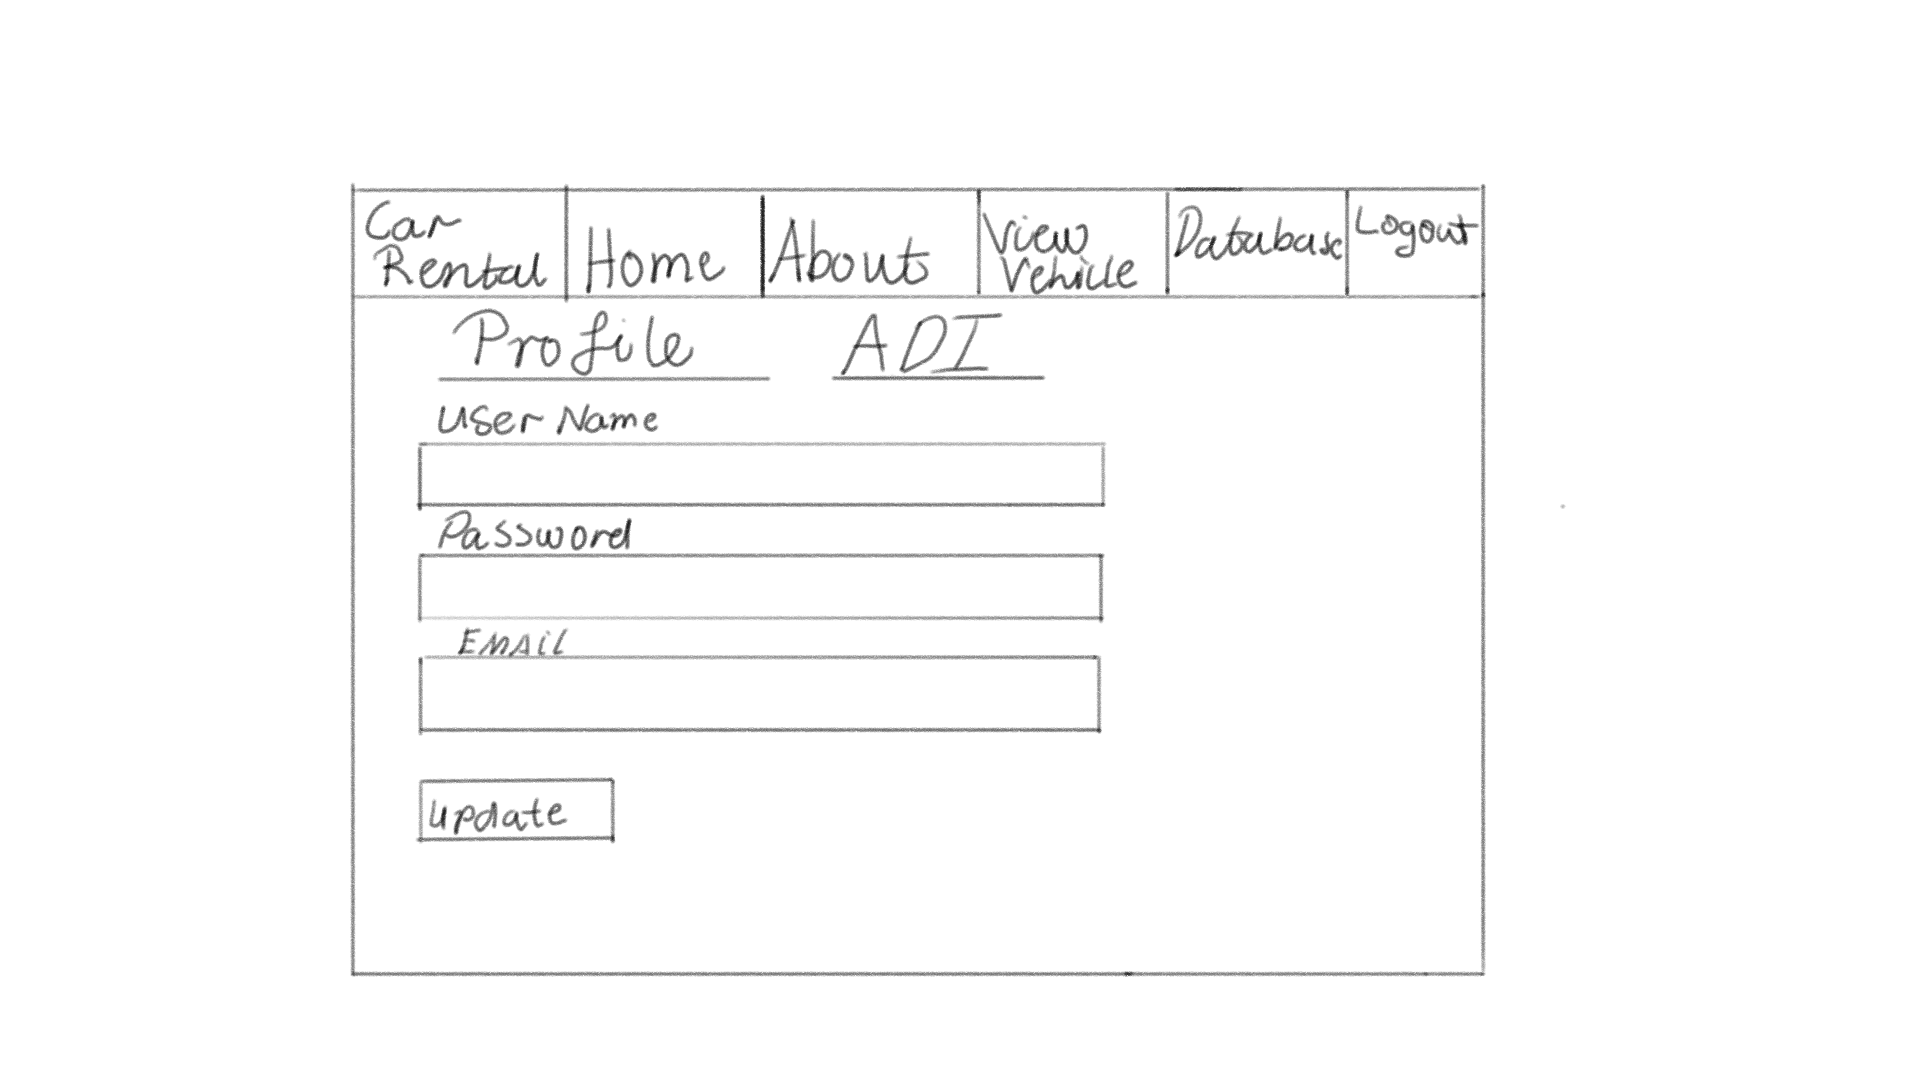 Car Rental Home About View Vehicle Database Logout
Profile ADI
User Name
Password
EMAil
update